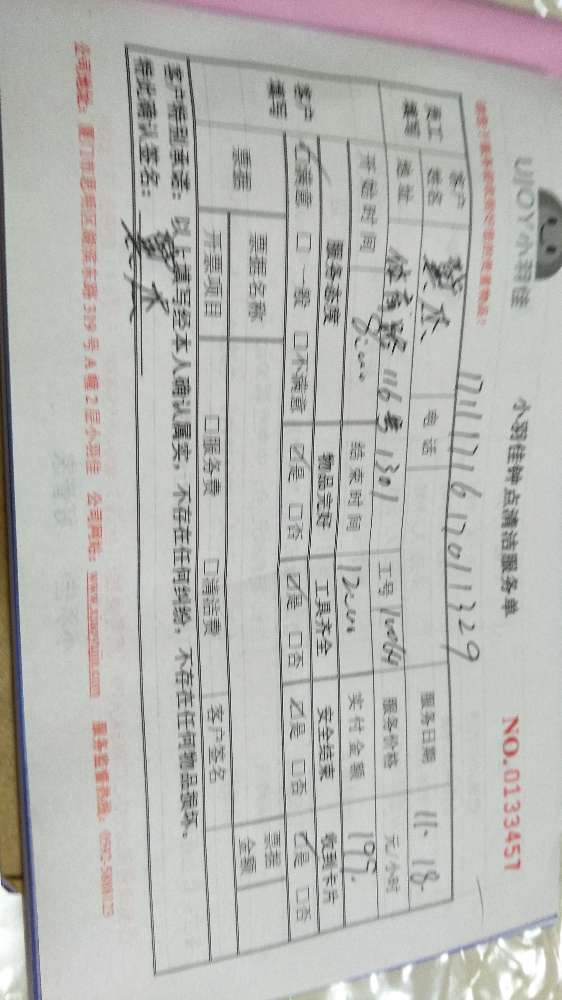 UJOY小羽佳
小羽佳钟点清洁服务单
NO.0133457
1711171617011329
员工填写 客户姓名 电话 服务日期 11.18
地址 体育路116号1301 工号 服务价格 元/小时
开始时间 结束时间 12:00 实付金额 195.
客户填写 服务态度 物品完好 工具齐全 安全结束 收到卡片
☑满意 □一般 □不满意 ☑是 □否 ☑是 □否 ☑是 □否 ☑是 □否
票据 票据名称 票据金额
开票项目 □服务费 □清洁费 客户签名
客户特别承诺：以上填写经本人确认属实，不存在任何纠纷，不存在任何物品损坏。
特此确认签名：
公司地址：厦门市思明区湖滨东路319号A幢2层小羽佳 公司网站：www.xiaoyujia.com 服务监督热线：0592-5808123